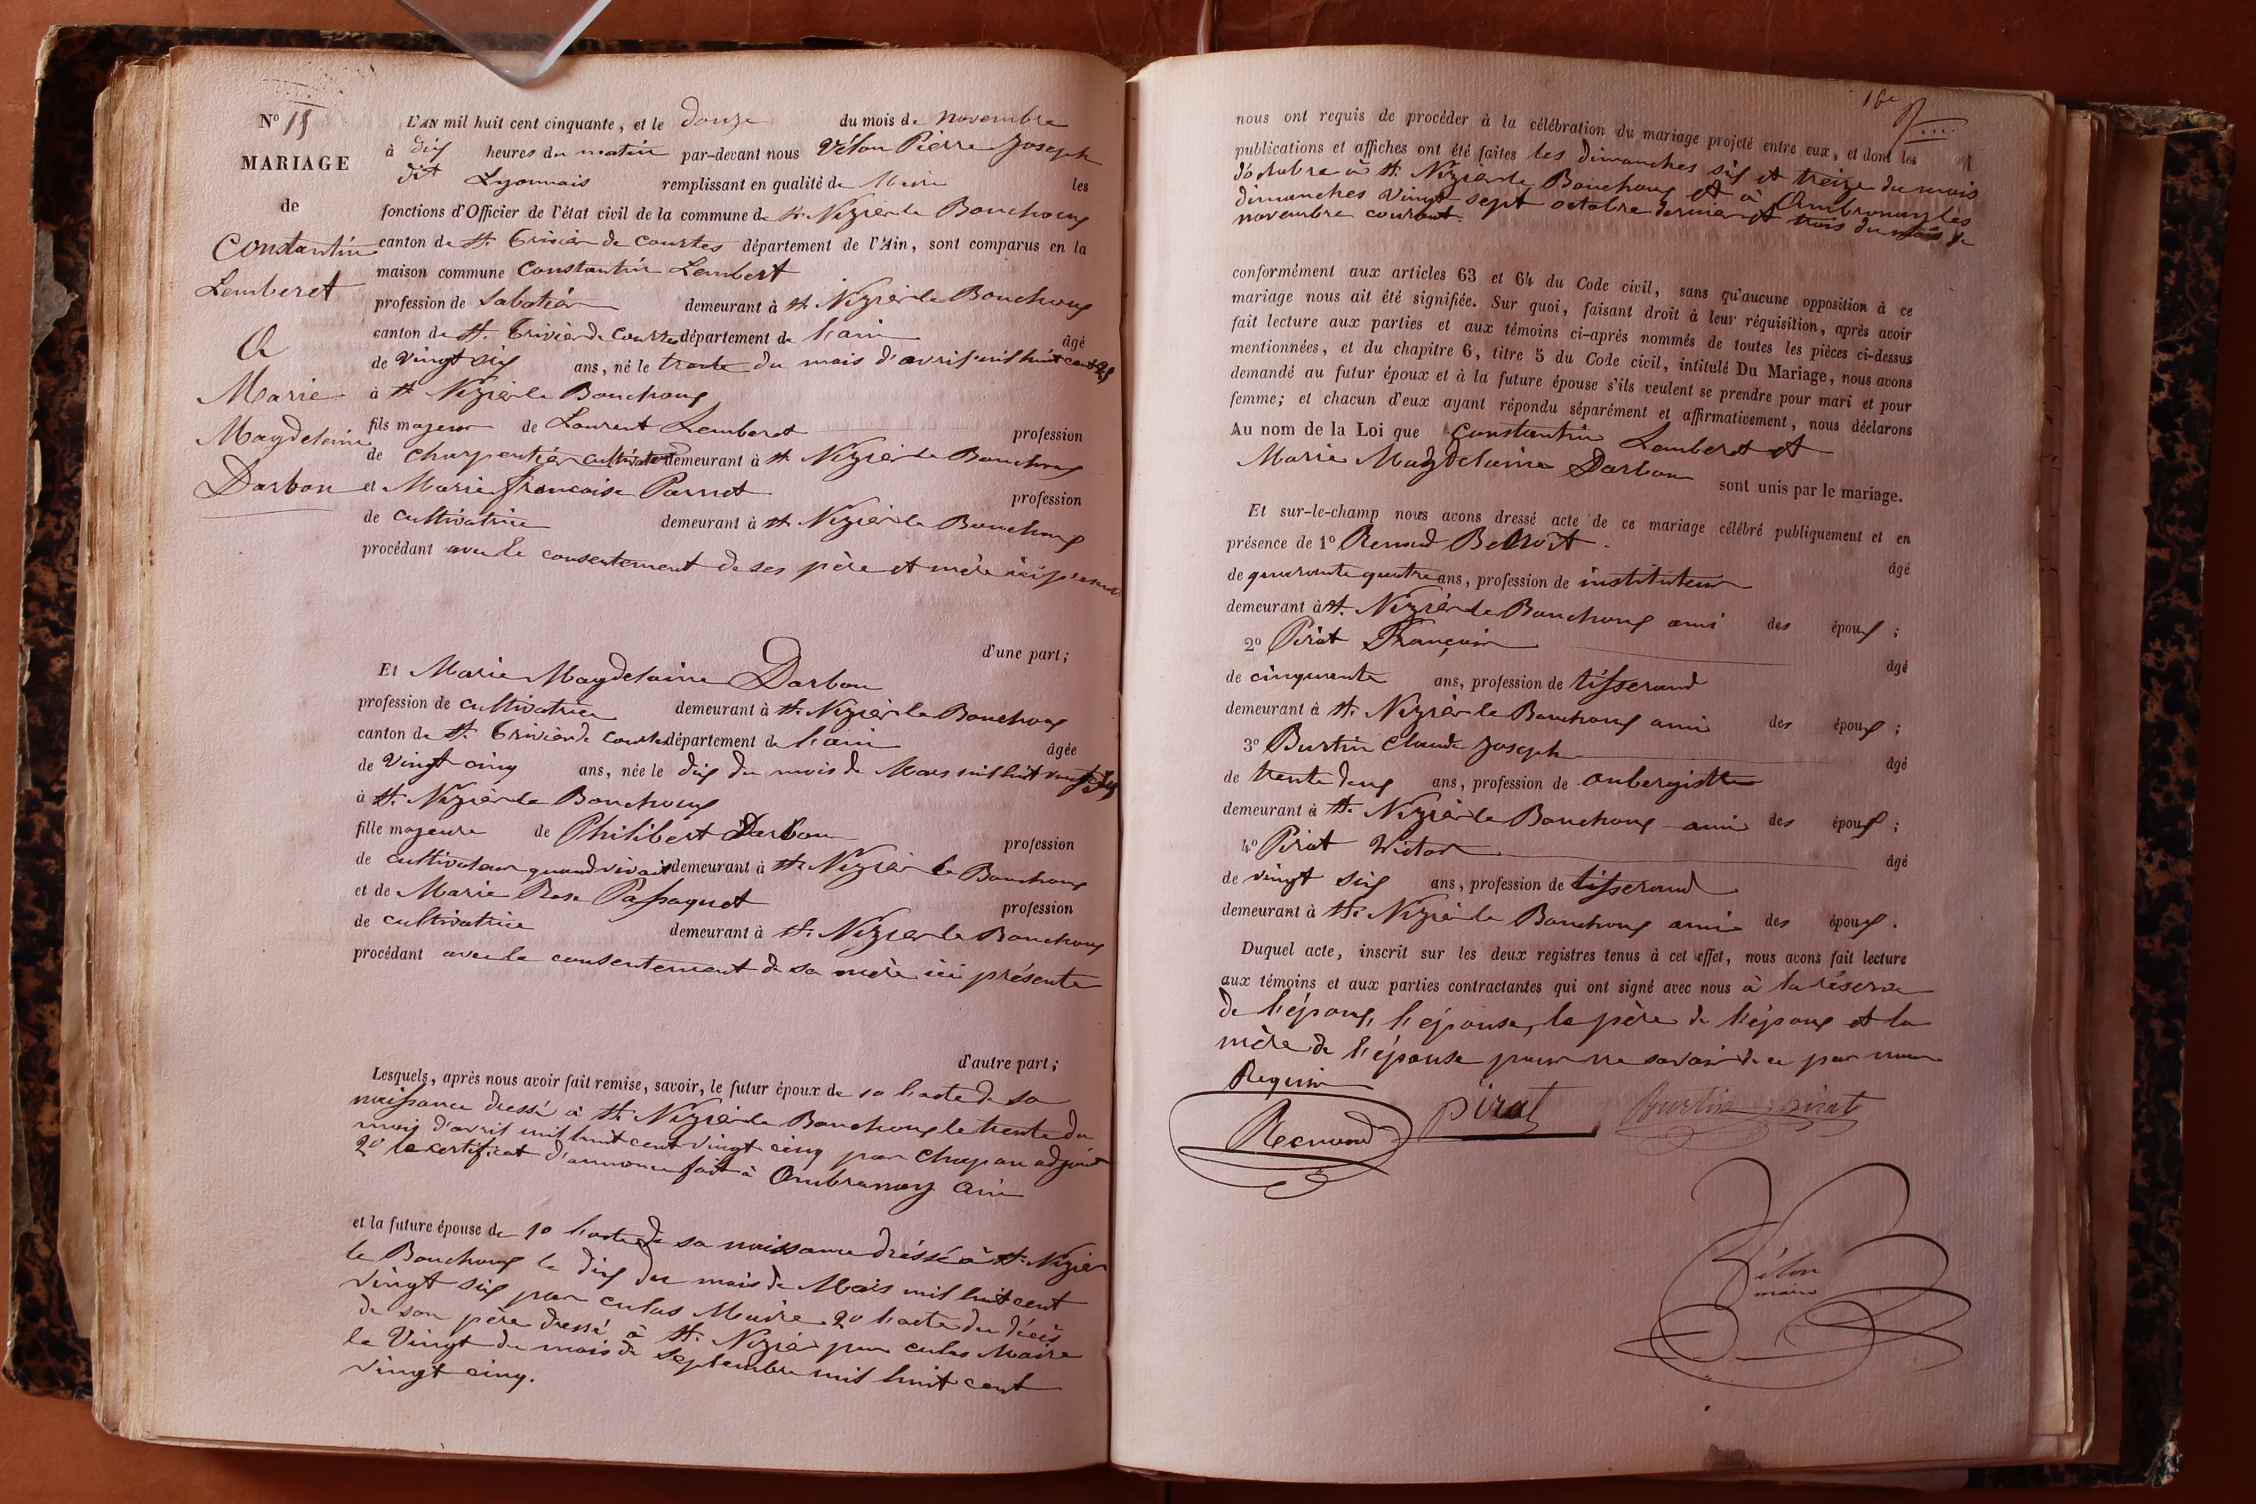 Nº 15
MARIAGE
de
Constantin
Lemberet
a
Marie
Magdelaine
Darbon
L'AN mil huit cent cinquante, et le douze du mois de novembre
à dix heures du matin par-devant nous Vélon Pierre Joseph
dit Lyonnais remplissant en qualité de Maire les
fonctions d'Officier de l'état civil de la commune de St. Nizier le Bouchoux
canton de St. Trivier de courtes département de l'Ain, sont comparus en la
maison commune Constantin Lemberet
profession de Sabotier demeurant à St Nizier le Bouchoux
canton de St. Trivier de Courtes département de l'ain âgé
de vingt six ans, né le trente du mois d'avril mil huit cent 25
à St Nizier le Bouchoux
fils majeur de Laurent Lemberet profession
de charpentier cultivateur demeurant à St Nizier le Bouchoux
et Marie françoise Parret profession
de cultivatrice demeurant à St Nizier le Bouchoux
procédant avec le consentement de ses père et mère ici présents
d'une part;
Et Marie Magdelaine Darbon
profession de cultivatrice demeurant à St. Nizier le Bouchoux
canton de St. Trivier de courtes département de l'ain âgée
de vingt cinq ans, née le dix du mois de Mars mil huit cent
à St. Nizier le Bouchoux
fille majeure de Philibert Darbon profession
de cultivateur quand vivait demeurant à St. Nizier le Bouchoux
et de Marie Rose Passaquet profession
de cultivatrice demeurant à St. Nizier le Bouchoux
procédant avec le consentement de sa mère ici présente
d'autre part;
Lesquels, après nous avoir fait remise, savoir, le futur époux de 1º l'acte de sa
naissance dressé à St. Nizier le Bouchoux le trente du
mois d'avril mil huit cent vingt cinq par Chapau adjoint
2º le certificat d'annonce fait à Ambronay ain
et la future épouse de 1º l'acte de sa naissance dressé à St. Nizier
le Bouchoux le dix du mois de Mars mil huit cent
vingt six par culas Maire 2º l'acte du décès
de son père dressé à St. Nizier par culas Maire
le Vingt du mois de Septembre mil huit cent
vingt cinq.
16e
nous ont requis de procéder à la célébration du mariage projeté entre eux, et dont les
publications et affiches ont été faites les dimanches six et treize du mois
d'octobre à St. Nizier le Bouchoux et à Ambronay les
dimanches vingt sept octobre dernier et trois du mois de
novembre courant.
conformément aux articles 63 et 64 du Code civil, sans qu'aucune opposition à ce
mariage nous ait été signifiée. Sur quoi, faisant droit à leur réquisition, après avoir
fait lecture aux parties et aux témoins ci-après nommés de toutes les pièces ci-dessus
mentionnées, et du chapitre 6, titre 5 du Code civil, intitulé Du Mariage, nous avons
demandé au futur époux et à la future épouse s'ils veulent se prendre pour mari et pour
femme; et chacun d'eux ayant répondu séparément et affirmativement, nous déclarons
Au nom de la Loi que Constantin Lemberet et
Marie Magdelaine Darbon sont unis par le mariage.
Et sur-le-champ nous avons dressé acte de ce mariage célébré publiquement et en
présence de 1º Renaud Benoit âgé
de quarante quatre ans, profession de instituteur
demeurant à St. Nizier le Bouchoux ami des époux ;
2º Pirat François âgé
de cinquante ans, profession de tisserand
demeurant à St. Nizier le Bouchoux ami des époux ;
3º Burtin Claude Joseph âgé
de trente deux ans, profession de aubergiste
demeurant à St. Nizier le Bouchoux ami des époux ;
4º Pirat Victor âgé
de vingt six ans, profession de tisserand
demeurant à St. Nizier le Bouchoux ami des époux.
Duquel acte, inscrit sur les deux registres tenus à cet effet, nous avons fait lecture
aux témoins et aux parties contractantes qui ont signé avec nous à la réserve
de l'époux, l'épouse, le père de l'époux et la
mère de l'épouse pour ne savoir de ce par nous
Requis
Renaud pirat Burtin pirat
Vélon
maire